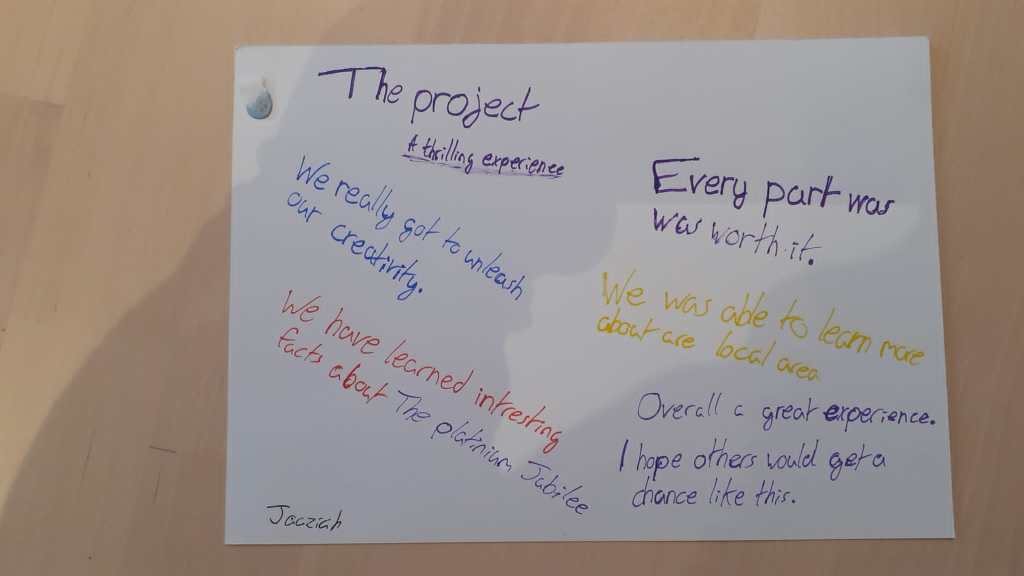 The project
A thrilling experience
We really got to unleash
our creativity.
We have learned intresting
facts about The platinium Jubilee
Every part was
was worth it.
We was able to learn more
about are local area
Overall a great experience.
I hope others would get a
chance like this.
Jaaziah